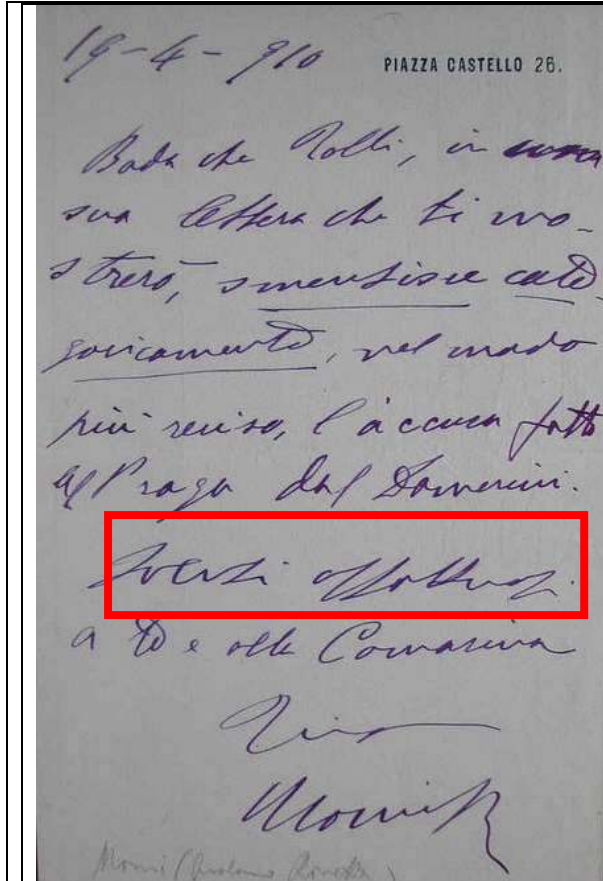 19-4-910
PIAZZA CASTELLO 26.
Bada che Rolli, in
sua lettera che ti mo-
strerò, smentisce cate-
goricamente, nel modo
più reciso, l'accusa fatta
al Praga dal Damerini.
affettuosi
a te e alla Comarina
Momi